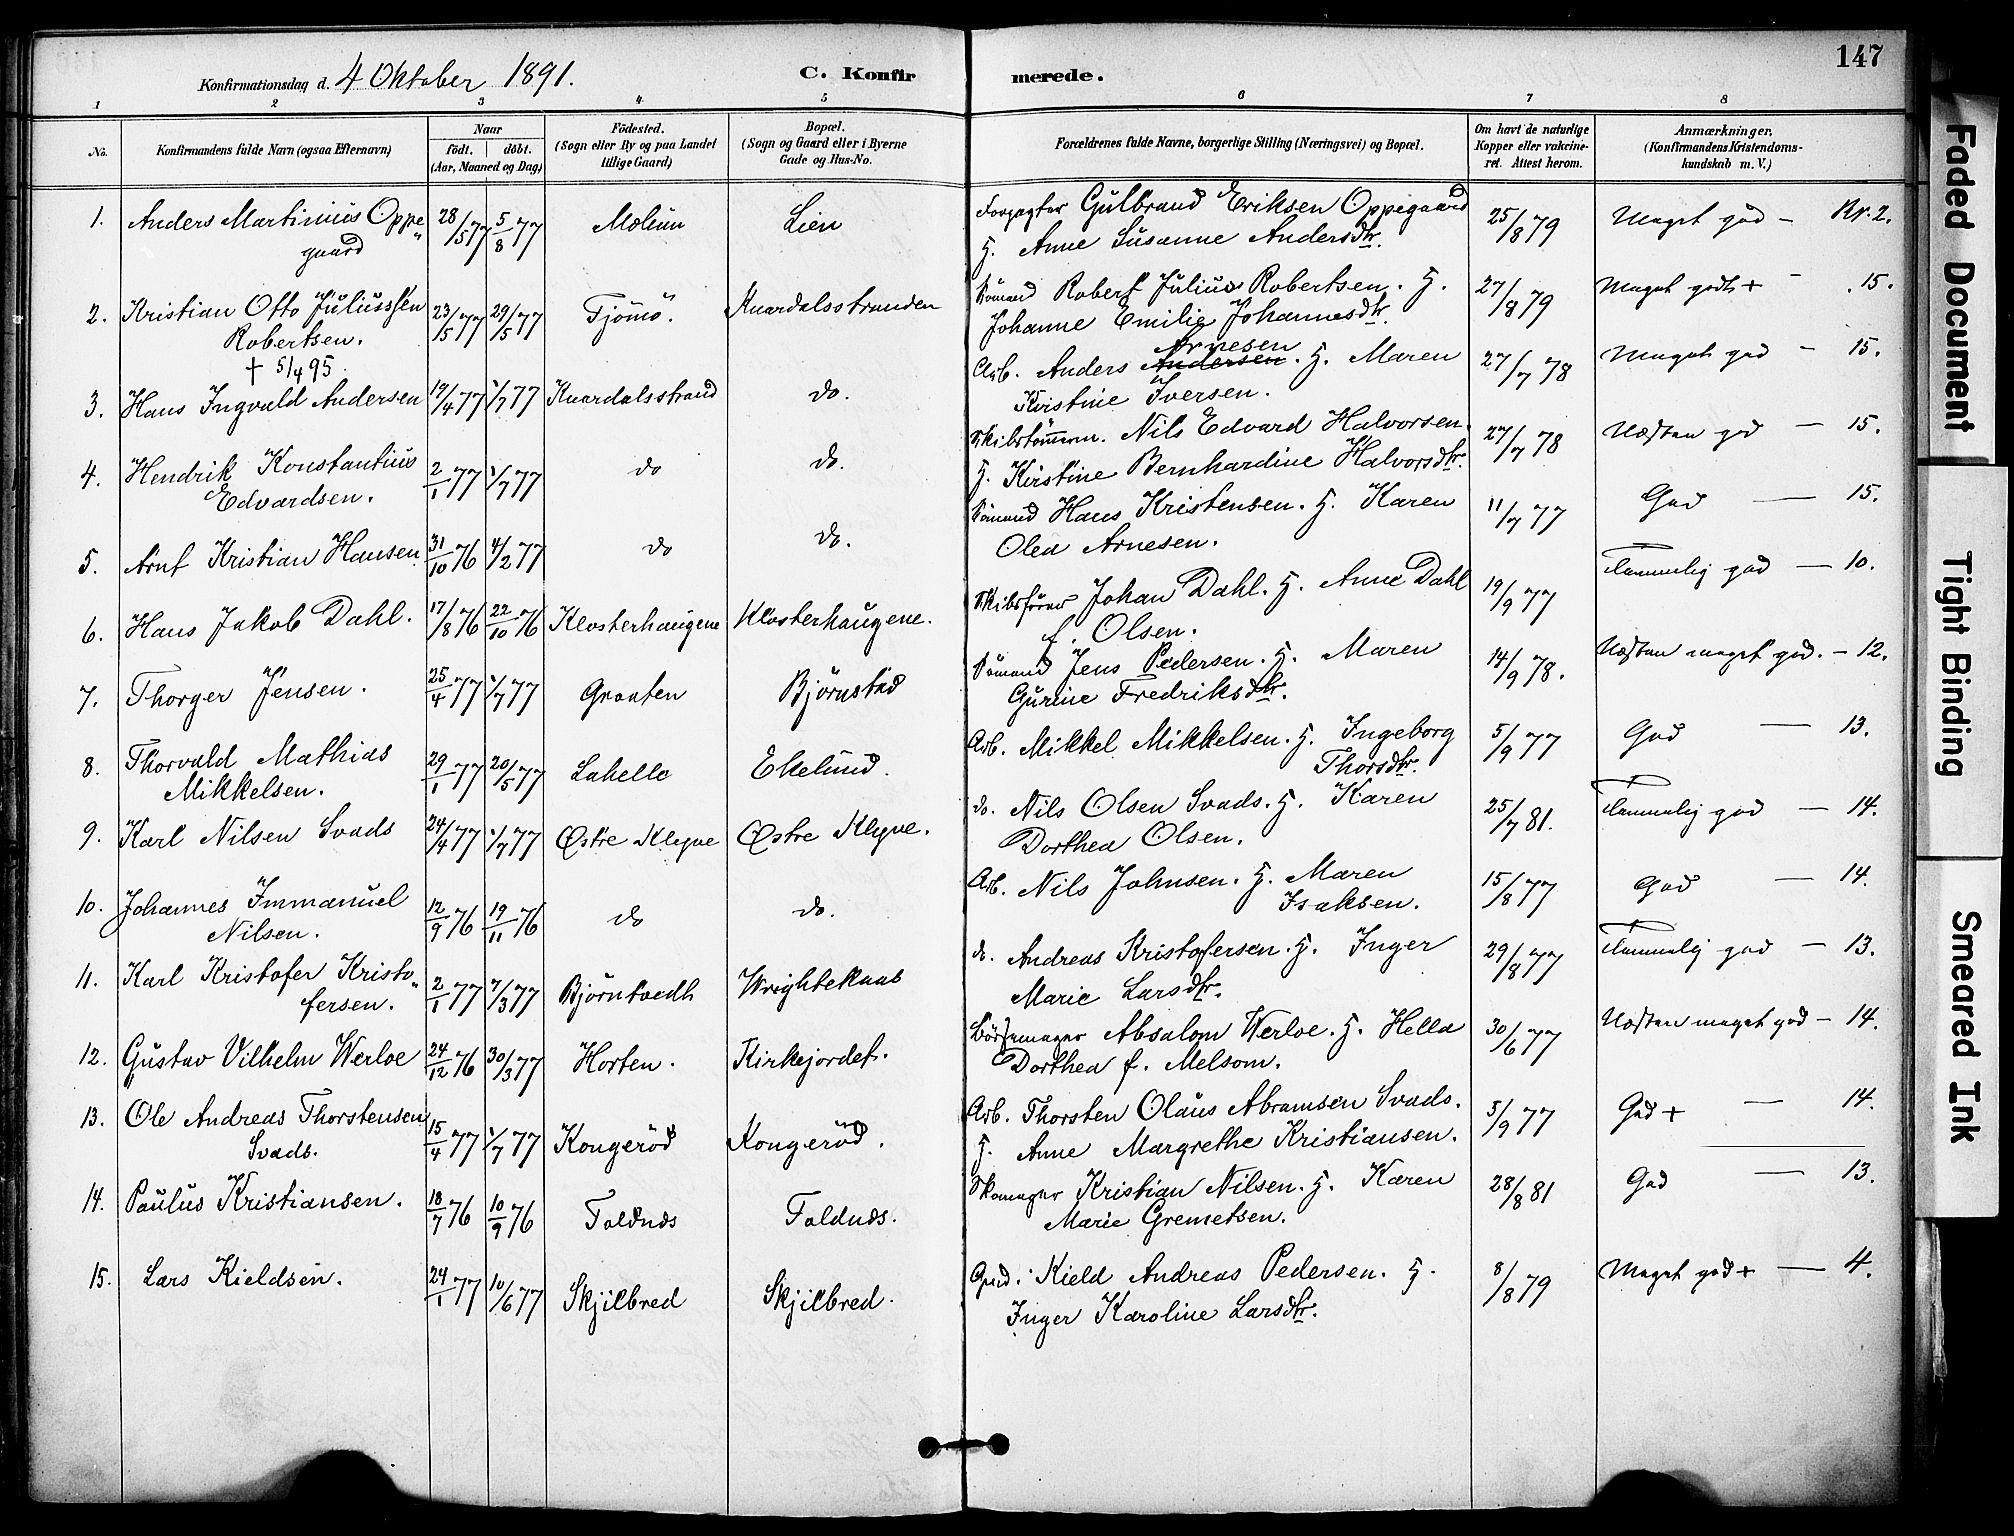 147
Konfirmationsdag d. 4 Oktober 1891. C. Konfirmerede.
1 2 3 4 5 6 7 8
No. Konfirmandens fulde Navn (ogsaa Efternavn) Naar födt. döbt. (Aar, Maaned og Dag) Födested. (Sogn eller By og paa Landet tillige Gaard) Bopæl. (Sogn og Gaard eller i Byerne Gade og Hus-No. Forældrenes fulde Navne, borgerlige Stilling (Næringsvei) og Bopæl. Om havt de naturlige Kopper eller vakcineret. Attest herom. Anmærkninger. (Konfirmandens Kristendomskundskab m. V.)
1. Anders Martinius Oppegaard 28/5 77 5/8 77 Mælum Lien Forpagter Gulbrand Eriksen Oppegaard H. Anne Susanne Andersdtr. 25/8 79 Meget god – Kr. 2.
2. Kristian Otto Juliussen Robertsen. + 5/4 95 23/5 77 29/5 77 Tjömö. Knardalsstranden Sömand Robert Julius Robertsen. H. Johanne Emilie Johannesdtr. 27/8 79 Meget godt + – 15.
3. Hans Ingvald Andersen 19/4 77 1/7 77 Knardalsstrand do. Arb. Anders Andersen Arnesen. H. Maren Kristine Iversen. 27/7 78 Meget god – 15.
4. Hendrik Konstantius Edvardsen. 2/1 77 1/7 77 do do. Skibstömmerm. Nils Edvard Halvorsen. H. Kirstine Bernhardine Halvorsdtr. 27/7 78 Næsten god – 15.
5. Arnt Kristian Hansen 31/10 76 4/2 77 do do. Sömand Hans Kristensen. H. Karen Olea Arnesen. 11/7 77 God – 15.
6. Hans Jakob Dahl. 17/8 76 22/10 76 Klosterhaugene Klosterhaugene. Skibsförer Johan Dahl. H. Anne Dahl f. Olsen. 19/9 77 Temmelig god – 10.
7. Thorger Jensen. 25/4 77 1/7 77 Graaten Björnstad Sömand Jens Pedersen. H. Maren Gurine Fredriksdtr. 14/9 78. Næsten meget god. – 12.
8. Thorvald Mathias Mikkelsen. 29/1 77 20/5 77 Lahelle Ekelund. Arb. Mikkel Mikkelsen. H. Ingeborg Thorsdtr. 5/9 77 God – 13.
9. Karl Nilsen Svads 24/4 77 1/7 77 Østre Klyve Østre Klyve. do. Nils Olsen Svads. H. Karen Dorthea Olsen. 25/7 81. Temmelig god – 14.
10. Johannes Immanuel Nilsen. 12/9 76 19/11 76 do do. Arb. Nils Johnsen. H. Maren Isaksen. 15/8 77 God – 14.
11. Karl Kristofer Kristofersen. 2/1 77 7/3 77 Björntvedt Wrightskaas do. Andreas Kristofersen. H. Inger Marie Larsdtr. 29/8 77 Temmelig god – 13.
12. Gustav Vilhelm Werloe 24/12 76 30/3 77 Horten. Kirkejordet. Börsemager Absalom Werloe. H. Hella Dorthea f. Melsom. 30/6 77 Næsten meget god – 14.
13. Ole Andreas Thorstensen Svads. 15/4 77 1/7 77 Kongeröd Kongeröd. Arb. Thorsten Olaus Abramsen Svads. H. Anne Margrethe Kristiansen. 5/9 77 God + – 14.
14. Paulus Kristiansen. 18/7 76 10/9 76 Foldnæs Foldnæs. Skomager Kristian Nilsen. H. Karen Marie Gremetsen. 28/8 81 God – 13.
15. Lars Kieldsen. 24/1 77 10/6 77 Skjilbred Skjilbred. Grd. Kield Andreas Pedersen. H. Inger Karoline Larsdtr. 8/8 79 Meget god + – 4.
Faded Document
Tight Binding
Smeared Ink